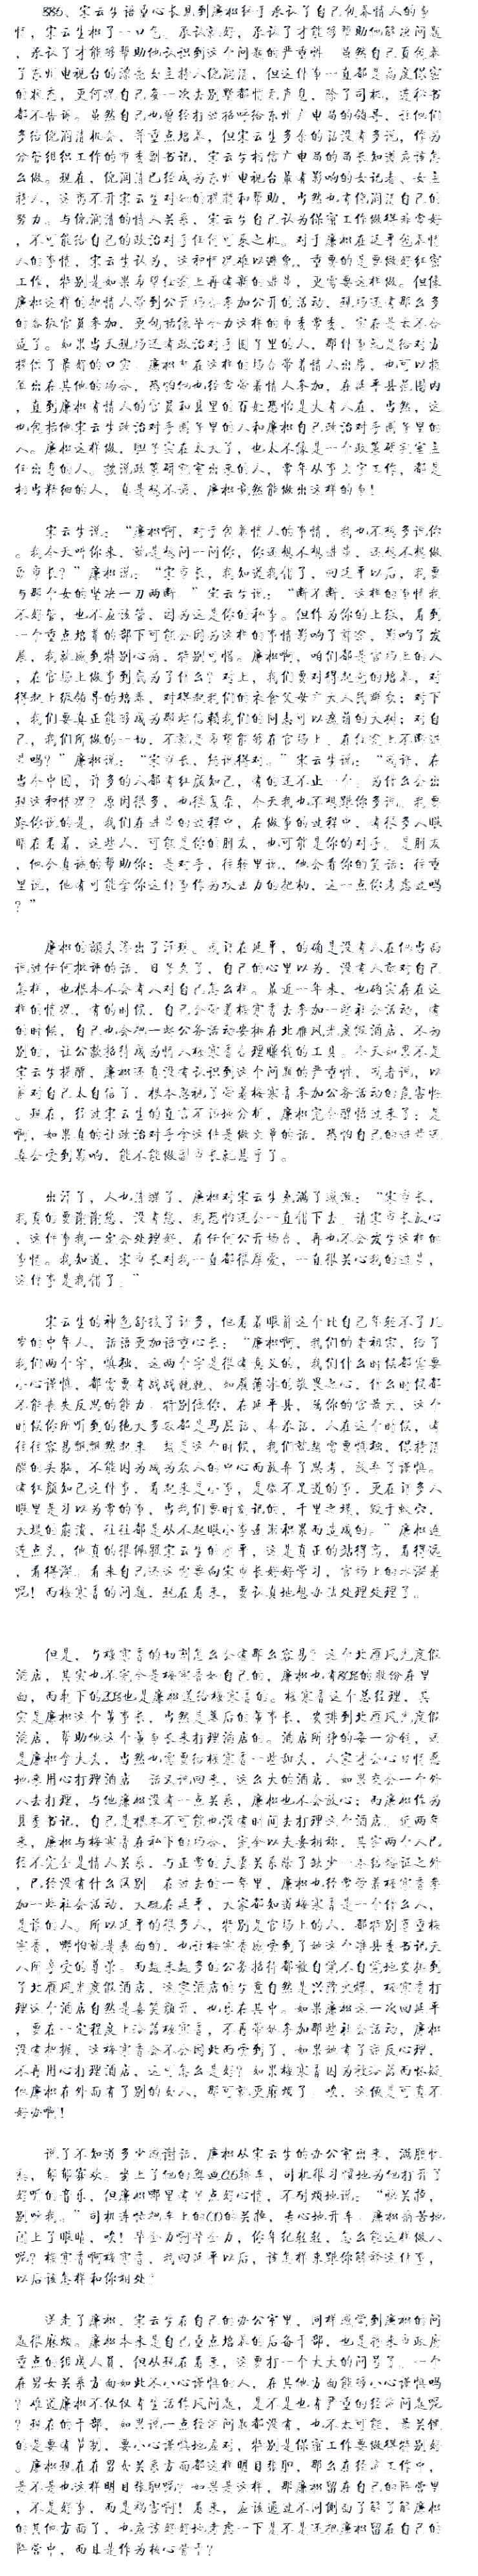 886、宋云生语重心长见到廉松终于承认了自己包养情人的事
情，宋云生松了一口气。承认就好，承认了才能帮助他解决问题
，承认了才能够帮助他认识到这个问题的严重性。虽然自己真包养
了东州电视台的漂亮女主持人倪润清，但这件事一直都是高度保密
的状态，更何况自己每一次去别墅都悄无声息，除了司机，连秘书
都不告诉。虽然自己也曾经打过招呼给东州广电局的领导，让他们
多给倪润清机会，并重点培养，但宋云生多余的话没有多说，作为
分管组织工作的市委副书记，宋云生相信广电局的局长知道应该怎
么做。现在，倪润清已经成为东州电视台最有影响的女记者、女主
持人，这离不开宋云生对她的提携和帮助，当然也有倪润清自己的
努力。与倪润清的情人关系，宋云生自己认为保密工作做得非常好
，不可能给自己的政治对手任何可乘之机。对于廉松在延平包养情
人的事情，宋云生认为，这种情况难以避免，重要的是要做好保密
工作，特别是如果希望仕途上再有新的进步，更需要这样做。但像
廉松这样的把情人带到公开场合参加公开的活动，现场还有那么多
的各级官员参加，更包括像毕全力这样的市委常委，实在是太不合
适了。如果当天现场还有政治对手圈子里的人，那什事就是给对方
提供了最好的口实。廉松敢在这样的场合带着情人出席，也可以推
定出在其他的场合，恐怕他也经常带着情人参加，在延平县范围内
，直到廉松有情人的官员和县里的百姓恐怕是大有人在，当然，这
也包括他宋云生政治对手圈子里的人和廉松自己政治对手圈子里的
人。廉松这样做，胆子实在太大了，也太不像是一个政策研究室主
任出身的人。按说政策研究室出来的人，常年从事文字工作，都是
相当精细的人，真是想不通，廉松竟然能做出这样的事！
宋云生说：“廉松啊，对于包养情人的事情，我也不想多说你
。我今天叫你来，就是想问一问你，你还想不想进步，还想不想做
副市长？”廉松说：“宋市长，我知道我错了，回延平以后，我要
与那个女的坚决一刀两断。”宋云生说：“断不断，这样的事情我
不好管，也不应该管，因为这是你的私事。但作为你的上级，看到
一个重点培养的部下可能会因为这样的事情影响了前途，影响了发
展，我就感到特别心痛，特别可惜。廉松啊，咱们都是官场上的人
，在官场上做事到底为了什么？对上，我们要对得起党的培养，对
得起上级领导的培养，对得起我们的衣食父母广大人民群众；对下
，我们要真正能够成为那些信赖我们的同志可以遮荫的大树；对自
己，我们所做的一切，不就是希望能够在官场上、在仕途上不断进
步吗？”廉松说：“宋市长，您说得对。”宋云生说：“或许，在
当今中国，许多的人都有红颜知己，有的还不止一个。为什么会出
现这种情况？原因很多，也很复杂，今天我也不想跟你多说。我要
跟你说的是，我们在进步的过程中，在做事的过程中，有很多人眼
睛在看着，这些人，可能是你的朋友，也可能是你的对手。是朋友
，他会真诚的帮助你；是对手，往轻里说，他会看你的笑话；往重
里说，他有可能拿你这件事作为攻击力的把柄，这一点你考虑过吗
？”
廉松的额头渗出了汗珠。或许在延平，的确是没有人在他当面
说过任何批评的话，日子久了，自己的心里以为，没有人敢对自己
怎样，也根本不会有人对自己怎么样。最近一年来，也确实存在这
样的情况，有的时候，自己会带着梅寒香去参加一些社会活动，有
的时候，自己也会把一些公务活动安排在北雁风光度假酒店，不为
别的，让公款招待成为情人梅寒香合理赚钱的工具。今天如果不是
宋云生提醒，廉松还真没有认识到这个问题的严重性，或者说，以
前对自己太自信了，根本忽视了带着梅寒香参加公务活动的危害性
。现在，经过宋云生的直言不讳地分析，廉松完全醒悟过来了：是
啊，如果真的让政治对手拿这件是做文章的话，恐怕自己的进步还
真会受到影响，能不能做副市长就悬乎了。
出汗了，人也清醒了，廉松对宋云生充满了感激：“宋市长，
我真的要谢谢您，没有您，我恐怕还会一直错下去。请宋市长放心
，这件事我一定会处理好，在任何公开场合，再也不会发生这样的
事情。我知道，宋市长对我一直都很厚爱，一直很关心我的进步，
这件事是我错了。”
宋云生的神色舒缓了许多，他看着眼前这个比自己年轻不了几
岁的中年人，话语更加语重心长：“廉松啊，我们的老祖宗，给了
我们两个字，慎独。这两个字是很有意义的，我们什么时候都需要
小心谨慎，都需要有战战兢兢、如履薄冰的敬畏之心，什么时候都
不能丧失反思的能力。特别像你，在延平县，属你的官最大，这个
时候你所听到的绝大多数都是马屁话、奉承话，人在这个时候，有
往往容易飘飘然起来。越是这个时候，我们就越需要慎独，保持清
醒的头脑，不能因为成为众人的中心而放弃了思考，放弃了谨慎。
有红颜知己这件事，看起来是小事，是微不足道的事，更在许多人
眼里是习以为常的事，当我们要时刻记的，千里之堤，毁于蚁穴，
大堤的崩溃，往往都是从不起眼小事逐渐积累而造成的。”廉松连
连点头，他真的很佩服宋云生的水平，这是真正的站得高，看得远
，看得深。看来自己还这需要向宋市长好好学习，官场上的水深着
呢！而梅寒香的问题，现在看来，要认真地想办法处理处理了。
但是，与梅寒香的切割怎么会有那么容易？这个北雁风光度假
酒店，其实也不完全是梅寒香她自己的，廉松也有80%的股份在里
面，而剩下的20%也是廉松送给梅寒香的。梅寒香这个总经理，其
实是廉松这个董事长，当然是幕后的董事长，安排到北雁风光度假
酒店，帮助他这个董事长来打理酒店的。酒店所挣的每一分钱，还
是廉松拿大头，当然也需要给梅寒香一些甜头，人家才会心甘情愿
地来用心打理酒店。话又说回来，这么大的酒店，如果交会一个外
人去打理，与他廉松没有一点关系，廉松也不会放心；而廉松作为
县委书记，自己是根本不可能也没有时间去打理这个酒店。近两年
来，廉松与梅寒香在私下的场合，完全以夫妻相称，其实两个人已
经不完全是情人关系，与正常的夫妻关系除了缺少一本结婚证之外
，已经没有什么区别。在过去的一年里，廉松也经常带着梅寒香参
加一些社会活动，大概在延平，大家都知道梅寒香是一个什么人，
是谁的人。所以延平的很多人，特别是官场上的人，都特别尊重梅
寒香，哪怕就是表面的，也让梅寒香感受到了她这个准县委书记夫
人所享受的尊荣。而越来越多的公务招待都被自觉不自觉地安排到
了北雁风光度假酒店，这家酒店的生意自然是兴隆火爆，梅寒香打
理这个酒店自然是喜笑颜开，也乐在其中。如果廉松这一次回延平
，要在一定程度上冷落梅寒香，不再带她参加那些社会活动，廉松
没有把握，这梅寒香会不会因此而受到了，如果她有了逆反心理，
不再用心打理酒店，这可怎么是好？如果梅寒香因为被冷落而怀疑
他廉松在外面有了别的女人，那可就更麻烦了。唉，这便是可真不
好办啊！
说了不知道多少感谢话，廉松从宋云生的办公室出来，满脸忧
愁，郁郁寡欢。坐上了他的奥迪C6轿车，司机很习惯地为他打开了
好听的音乐，但廉松哪里有半点好心情，不耐烦地说：“快关掉，
别吵我。”司机连忙把车上的CD的关掉，专心地开车。廉松痛苦地
闭上了眼睛，唉！毕全力啊毕全力，你年纪轻轻，怎么能这样做人
呢？梅寒香啊梅寒香，我回延平以后，该怎样来跟你解释这件事，
以后该怎样和你相处？
送走了廉松，宋云生在自己的办公室里，同样感觉到廉松的问
题很麻烦。廉松本来是自己重点培养的后备干部，也是将来市政府
重点的组成人员，但从现在看来，这要打一个大大的问号了。一个
在男女关系方面如此不小心谨慎的人，在其他方面能够小心谨慎吗
？难道廉松不仅仅有生活作风问题，是不是也有严重的经济问题呢
？现在的干部，如果说一点经济问题都没有，也不太可能，最关键
的是要有节制，要小心谨慎地应对，特别是保密工作要做得特别好
。廉松现在在男女关系方面都这样明目张胆，那么在经济工作中，
是不是也这样明目张胆呢？如果是这样，那廉松留在自己的阵营里
，不是好事，而是祸害啊！看来，应该通过不同侧面了解了解廉松
的其他方面了，也应该好好地考虑一下是不是还把廉松留在自己的
阵营中，而且是作为核心骨干？